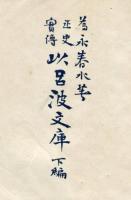 為永春水著
正史
實傳
以呂波文庫
下編